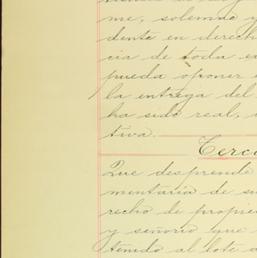 me, solemne y
dente en derech
cia de toda ex
pueda oponer
la entrega del
ha sido real,
tiva.
Terce
Que desprende
mentaria de su
recho de propie
y señorio que
tenido al lote